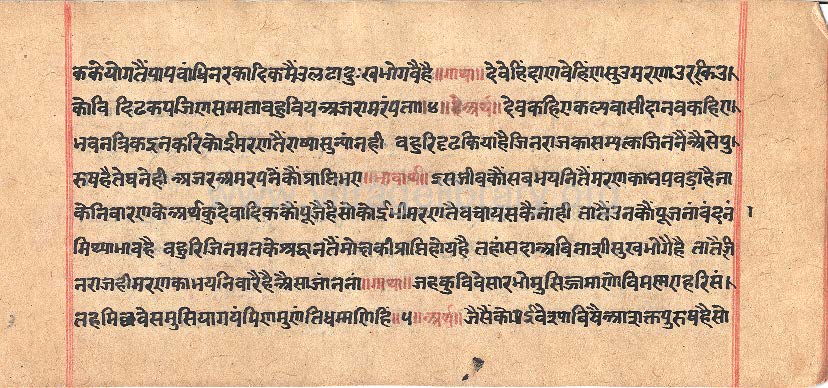 ककेयोगतैंपापबांधिनरकादिकमैंउलटादुःखभोगवैहै॥गाथा॥देवेहिंदाणवेहिंणसुउमरणाउरक्खिउ।
कोवि दिढकयजिणसम्मताबहुवियअजरामरंपता॥४॥अर्थ॥देवकहिएकल्पवासीदानवकहिए।
भवनत्रिकइनकरिकोईमरणतैंराष्यासुन्यांनही बहुरिदृढकियाहैजिनराजकासम्यक्तजिननैंअैसेपु
रुषहैतेघनेही अजरअमरपनेकौंप्राप्तिभए॥भावार्थ॥इसजीवकौंसबभयनितैंमरणकाभयबड़ाहैता
केनिवारणकेअर्थकुदेवादिककौंपूजैहैसोकोईभीमरणतैबचायसकैनांही तातैंइनकौंपूजनांबंदनां
मिथ्याभावहै बहुरिजिनमतकेश्रद्धानतैंमोक्षकीप्राप्तिहोयहै तहांसदाअविनाशीसुखभोगैहै तातैंजि
नराजहीमरणकाभयनिवारैहैअैसाजांननां॥गाथा॥जहकुविवेसारत्तोमुसिज्जमाणोविमण्णएहरिसं।
तहमिछवेसमुसियागयंपिणमुणंतिधम्मणिहिं॥५॥अर्थ॥जैसैंकोईवेश्याबिषैंआशक्तपुरुषहैसो